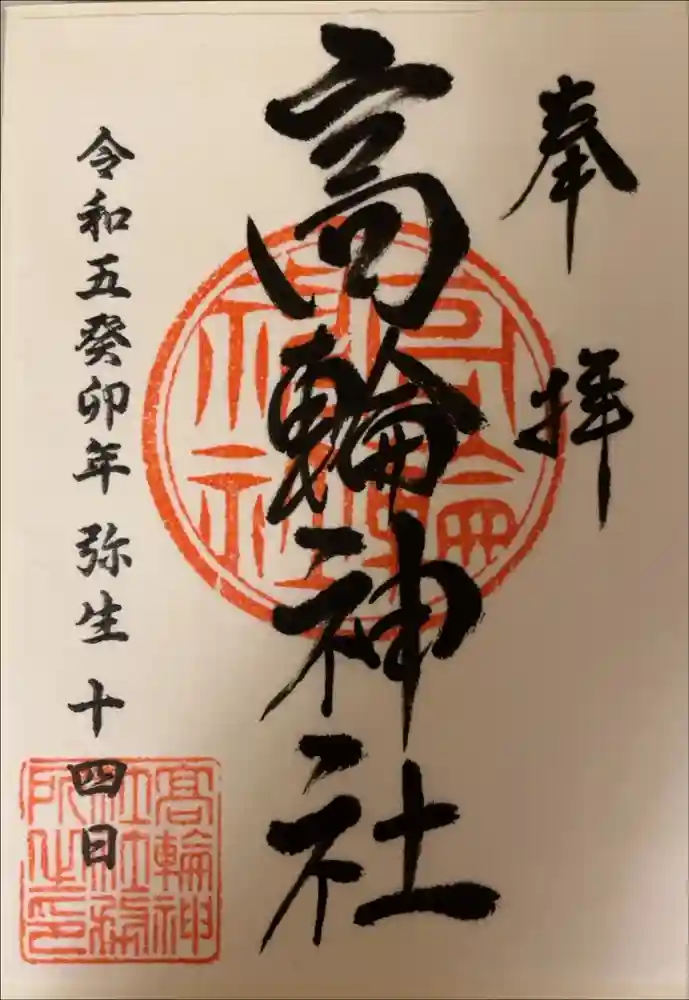 奉拝
高輪神社
令和五癸卯年 弥生 十四日
高輪神社
高輪神社社務所之印